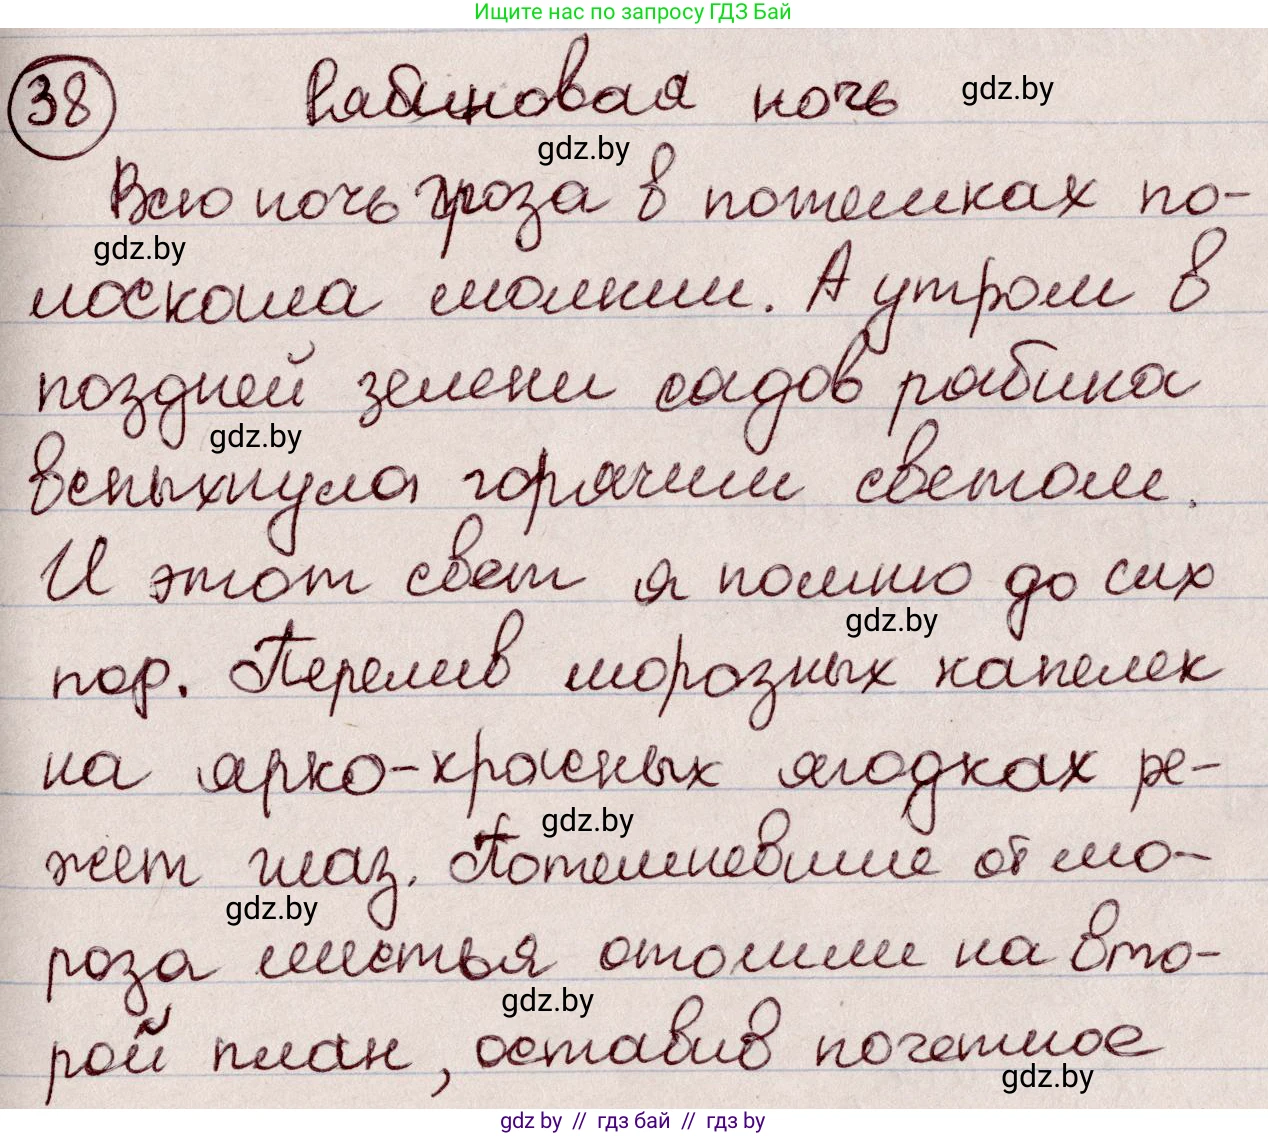 Ищите нас по запросу ГДЗ Бай
38 Рябиновая ночь gdz.by
gdz.by
Всю ночь гроза в потемках по-
gdz.by
лоскала молнии. А утром в
поздней зелени садов рябина
gdz.by
вспыхнула горячим светом.
И этот свет я помню до сих
gdz.by
пор. Перелив морозных капелек
на ярко-красных ягодках ре-
gdz.by
жет глаз. Потемневшие от мо-
gdz.by
роза листья отошли на вто-
gdz.by
рой план, оставив почетное
gdz.by
gdz by // гдз бай // гдз by